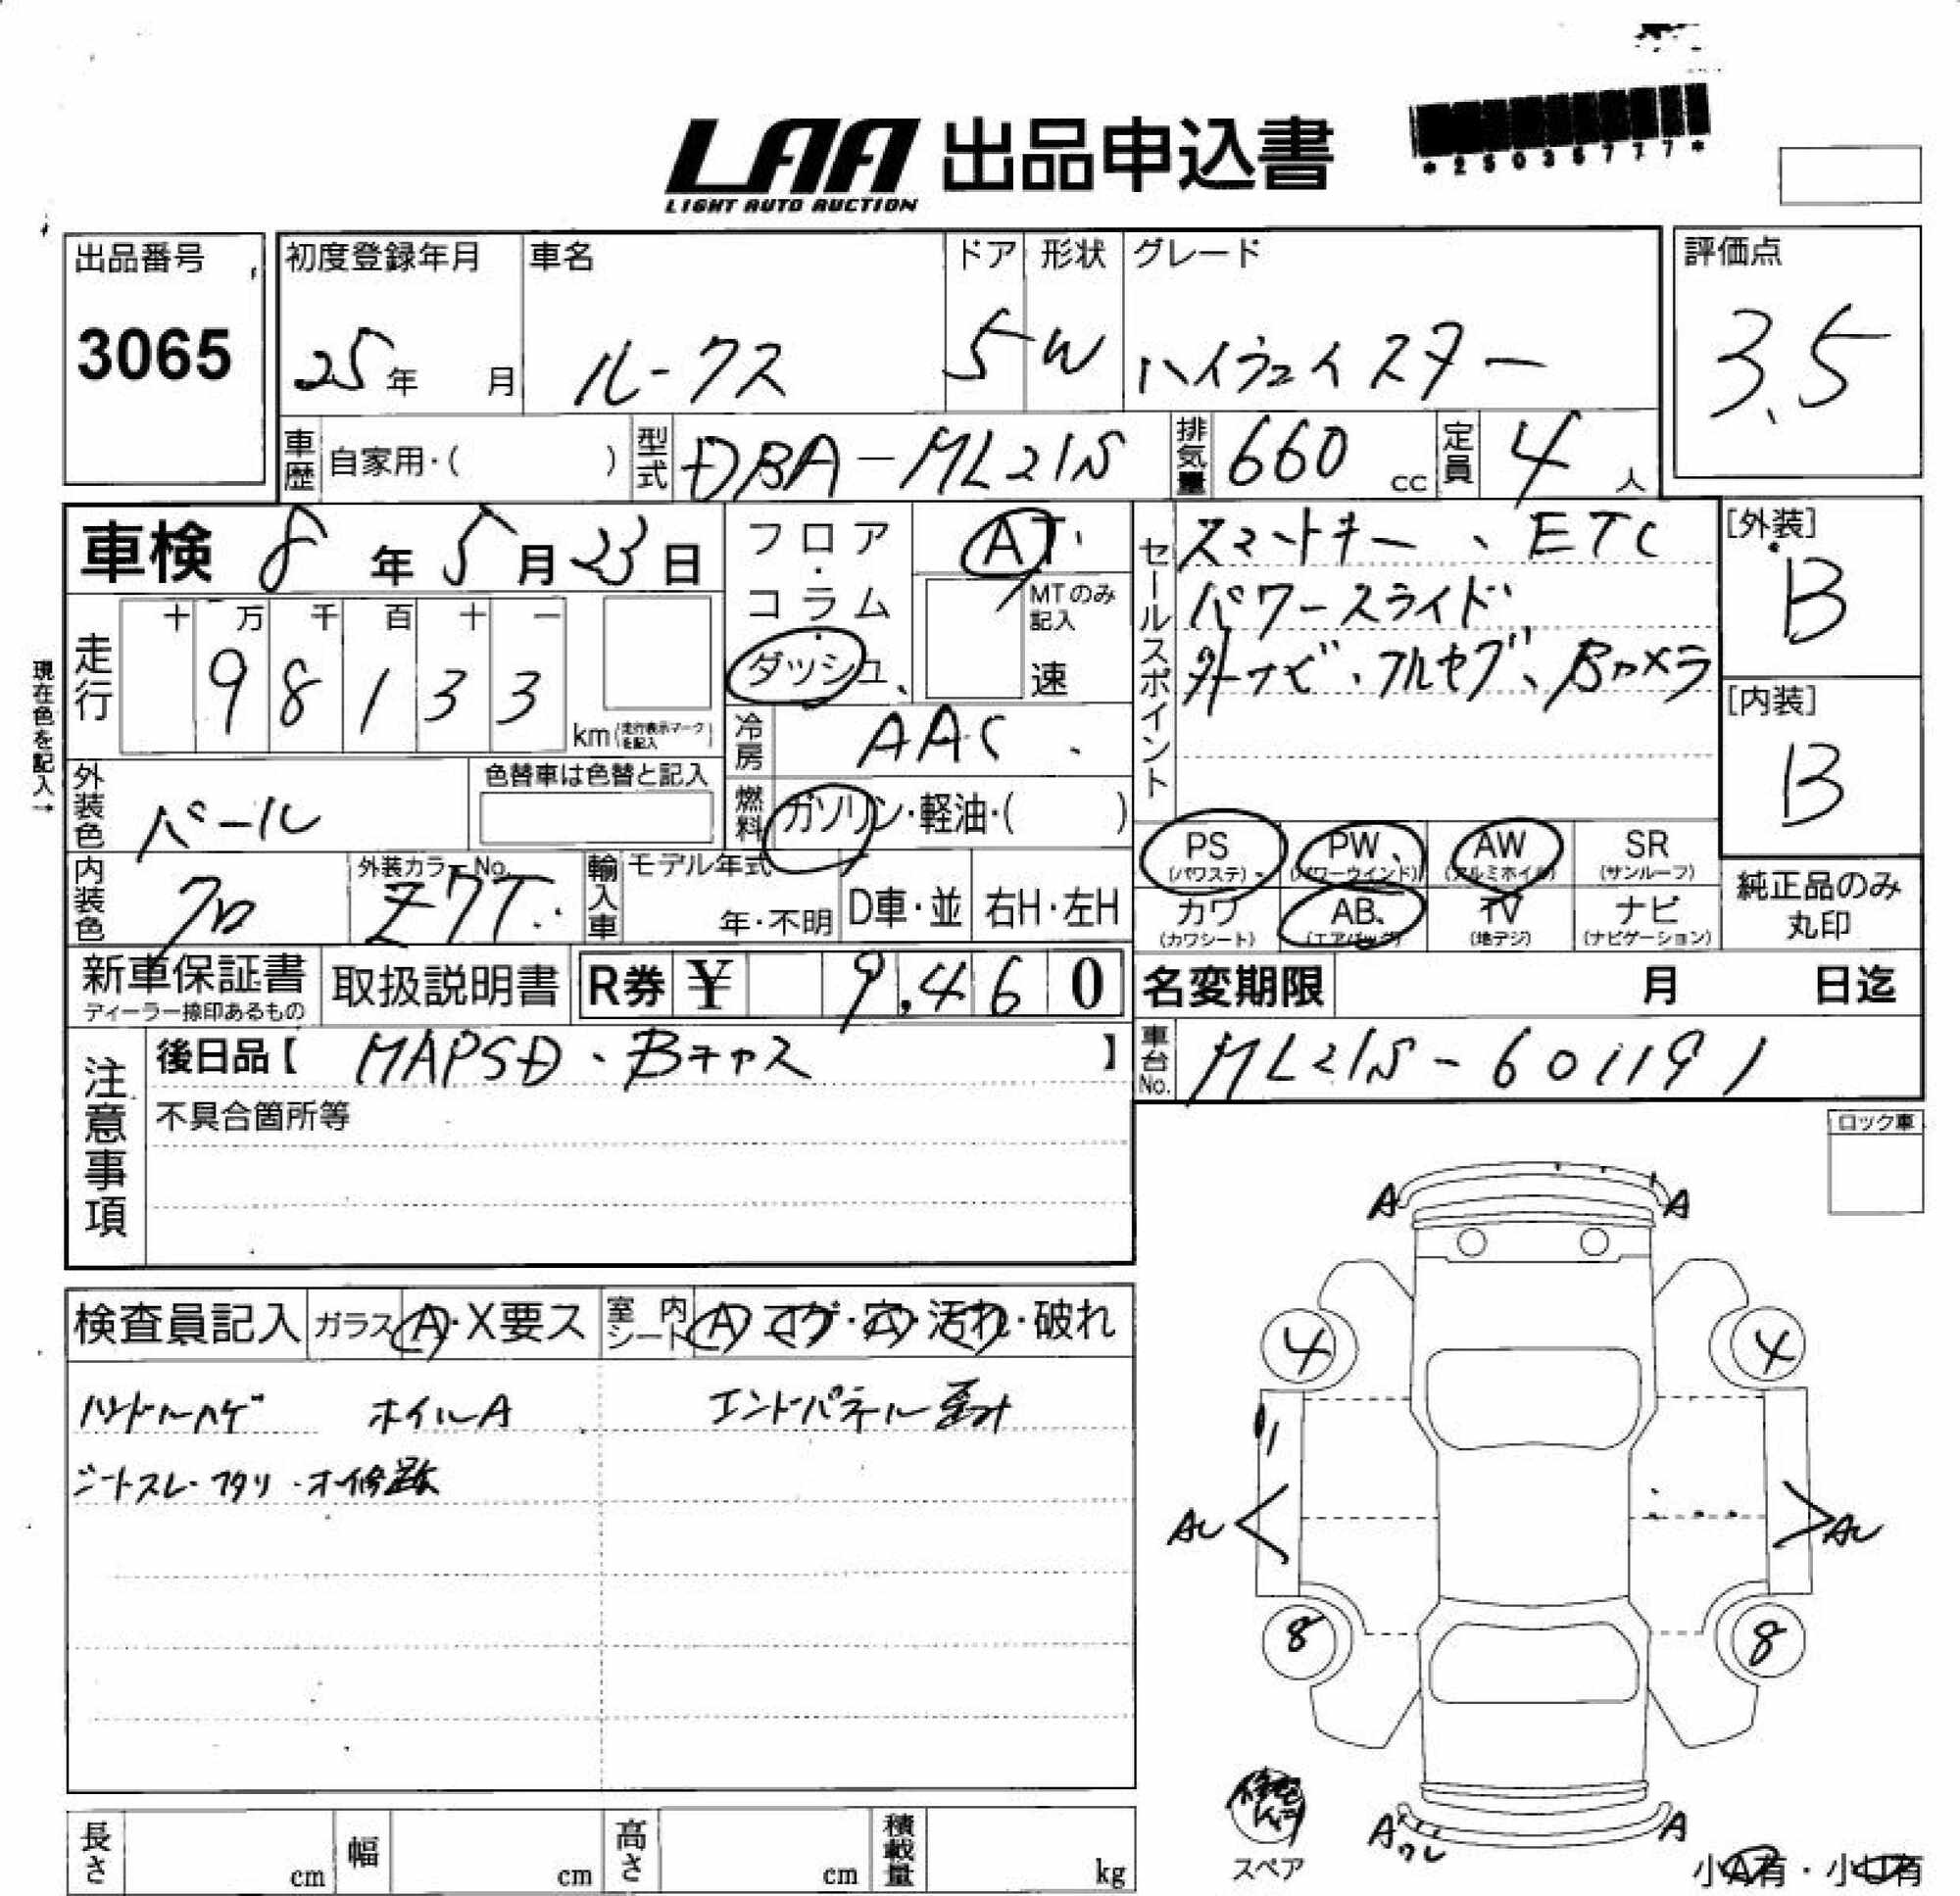 LAA 出品申込書
LIGHT AUTO AUCTION
*25035777*
出品番号
3065
初度登録年月
25年 月
車名
ルークス
ドア
5
形状
W
グレード
ハイウェイスター
評価点
3.5
車歴 自家用・( )
型式 DBA-ML21S
排気量 660 cc
定員 4 人
車検 8年 5月 23日
フロア・コラム・ダッシュ
AT
MTのみ記入
速
セールスポイント
スマートキー、ETC
パワースライド
外ナビ、フルセグ、Bカメラ
[外装]
B
[内装]
B
現在色を記入→
走行 十 万 千 百 十 一
98133
km(走行表示マークを記入)
冷房 AAC
燃料 ガソリン・軽油・( )
外装色 パール
色替車は色替と記入
内装色 クロ
外装カラーNo. Z7T
輸入車 モデル年式
年・不明 D車・並 右H・左H
PS (パワステ)
PW (パワーウインド)
AW (アルミホイル)
SR (サンルーフ)
カワ (カワシート)
AB (エアバッグ)
TV (地デジ)
ナビ (ナビゲーション)
純正品のみ丸印
新車保証書
ディーラー捺印あるもの
取扱説明書
R券 ¥ 9,460
名変期限 月 日迄
注意事項
後日品【 MAPSD、Bキャス 】
車台No. ML21S-601191
不具合箇所等
ロック車
検査員記入 ガラス A・X要ス
室内シート A コゲ・穴・汚れ・破れ
ハンドルハゲ ホイルA エンドパネル歪み
シートスレ
A A
4 4
AU AU
8 8
A A
スペア
小A有・小U有
長さ cm 幅 cm 高さ cm 積載量 kg